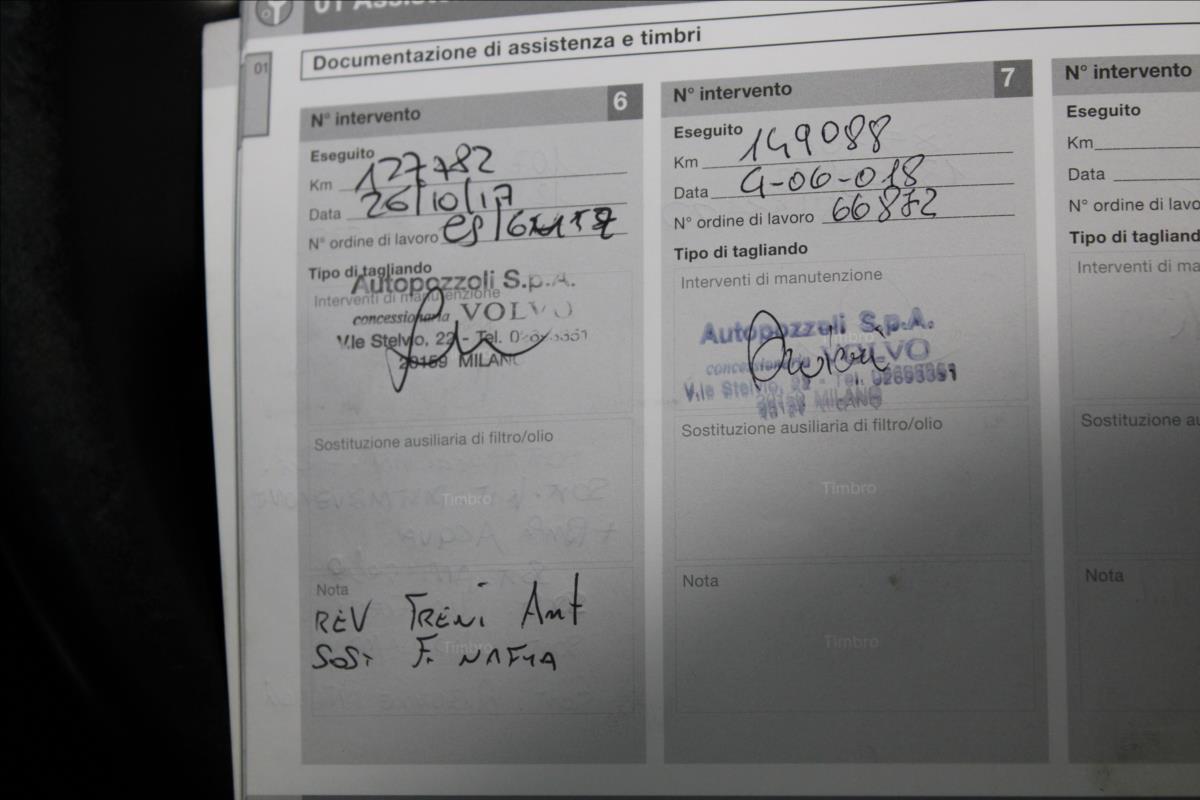 01
Documentazione di assistenza e timbri
N° intervento 6
Eseguito
Km 127782
Data 26/10/17
N° ordine di lavoro
Tipo di tagliando
Interventi di manutenzione
Autopozzoli S.p.A.
concessionaria VOLVO
V.le Stelvio, 22 - Tel.
20159 MILANO
Sostituzione ausiliaria di filtro/olio
Timbro
Nota
REV FRENI Ant
SOST F. NAFTA
Timbro
N° intervento 7
Eseguito
Km 149088
Data 4-06-018
N° ordine di lavoro 66872
Tipo di tagliando
Interventi di manutenzione
Timbro
Autopozzoli S.p.A.
concessionaria VOLVO
V.le Stelvio, 22 - Tel.
20159 MILANO
Sostituzione ausiliaria di filtro/olio
Timbro
Nota
Timbro
N° intervento
Eseguito
Km
Data
N° ordine di lavo
Tipo di tagliand
Interventi di ma
Sostituzione au
Nota